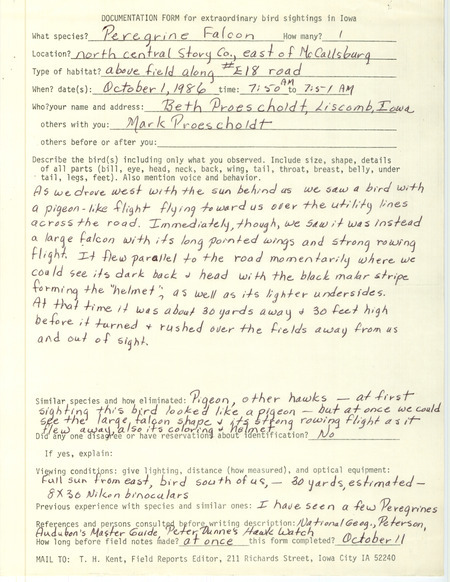 DOCUMENTATION FORM for extraordinary bird sightings in Iowa
What species? Peregrine Falcon How many? 1
Location? north central Story Co., east of McCallsburg
Type of habitat? above field along #E18 road
When? date(s): October 1, 1986 time: 7:50 AM to 7:51 AM
Who? your name and address: Beth Proescholdt, Liscomb, Iowa
others with you: Mark Proescholdt
others before or after you:
Describe the bird(s) including only what you observed. Include size, shape, details
of all parts (bill, eye, head, neck, back, wing, tail, throat, breast, belly, under
tail, legs, feet). Also mention voice and behavior.
As we drove west with the sun behind us we saw a bird with
a pigeon-like flight flying toward us over the utility lines
across the road. Immediately, though, we saw it was instead
a large falcon with its long pointed wings and strong rowing
flight. It flew parallel to the road momentarily where we
could see its dark back + head with the black malar stripe
forming the "helmet", as well as its lighter undersides.
At that time it was about 30 yards away + 30 feet high
before it turned + rushed over the fields away from us
and out of sight.
Similar species and how eliminated: Pigeon, other hawks — at first
sighting this bird looked like a pigeon — but at once we could
see the large falcon shape + its strong rowing flight as it
flew away, also its coloring + helmet.
Did any one disagree or have reservations about identification? No
If yes, explain:
Viewing conditions: give lighting, distance (how measured), and optical equipment:
Full sun from east, bird south of us, — 30 yards, estimated —
8X30 Nikon binoculars
Previous experience with species and similar ones: I have seen a few Peregrines
References and persons consulted before writing description: National Geog., Peterson,
Audubon's Master Guide, Peter Dunne's Hawk Watch
How long before field notes made? at once this form completed? October 11
MAIL TO: T. H. Kent, Field Reports Editor, 211 Richards Street, Iowa City IA 52240